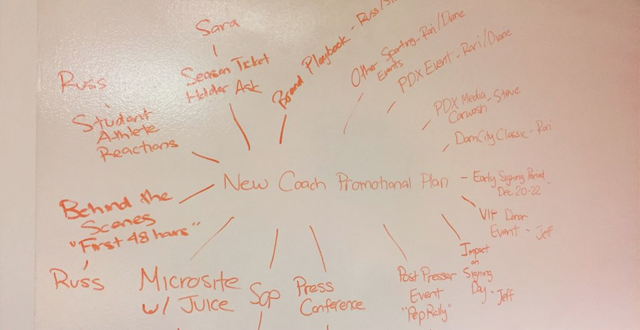 Sara
Season Ticket
Holder Ask
Brand Playbook - Russ/
Other Sporting - Rori/Diane
Events
PDX Event - Rori/Diane
Russ
Student
Athlete
Reactions
PDX Media - Steve
Carwash
DamCity Classic - Rori
New Coach Promotional Plan
Early Signing Period
Dec 20-22
Behind the
Scenes
"First 48 hours"
Russ
VIP Donor
Event - Jeff
Impact
on
Signing
Day - Jeff
Microsite
w/ JUICE
Sop
Press
Conference
Post Presser
Event
"Pep Rally"